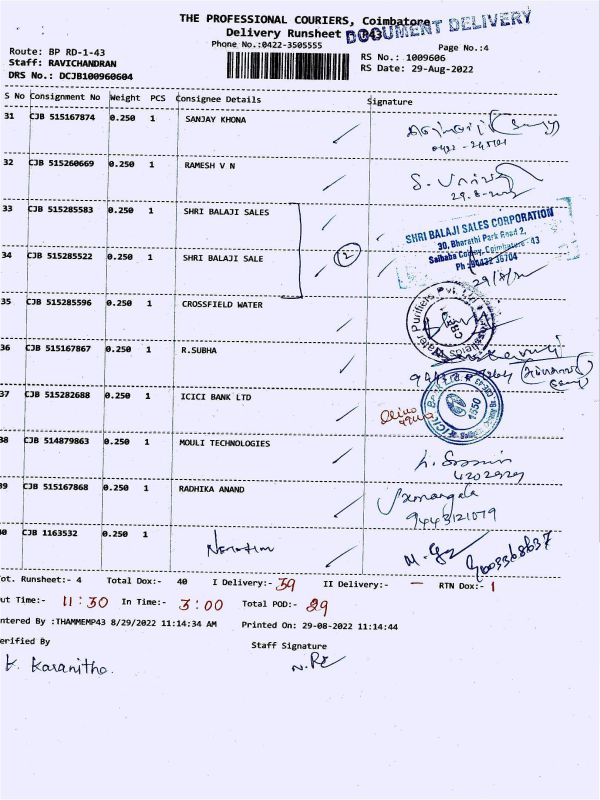 THE PROFESSIONAL COURIERS, Coimbatore
DOCUMENT DELIVERY
Delivery Runsheet
Phone No.:0422-3505555
Page No.:4
Route: BP RD-1-43
RS No.: 1009606
Staff: RAVICHANDRAN
RS Date: 29-Aug-2022
DRS No.: DCJB100960604
S No Consignment No Weight PCS Consignee Details Signature
31 CJB 515167874 0.250 1 SANJAY KHONA
32 CJB 515260669 0.250 1 RAMESH V N
33 CJB 515285583 0.250 1 SHRI BALAJI SALES
SHRI BALAJI SALES CORPORATION
30, Bharathi Park Road 2,
Saibaba Colony, Coimbatore - 43
34 CJB 515285522 0.250 1 SHRI BALAJI SALE 2
35 CJB 515285596 0.250 1 CROSSFIELD WATER
Water Purifiers Pvt.
36 CJB 515167867 0.250 1 R.SUBHA
37 CJB 515282688 0.250 1 ICICI BANK LTD
38 CJB 514879863 0.250 1 MOULI TECHNOLOGIES
39 CJB 515167868 0.250 1 RADHIKA ANAND
9443121079
40 CJB 1163532 0.250 1
ot. Runsheet:- 4 Total Dox:- 40 I Delivery:- 39 II Delivery:- — RTN Dox:- 1
ut Time:- 11:30 In Time:- 3:00 Total POD:- 29
ntered By :THAMMEMP43 8/29/2022 11:14:34 AM Printed On: 29-08-2022 11:14:44
erified By Staff Signature
K. Karanitha.